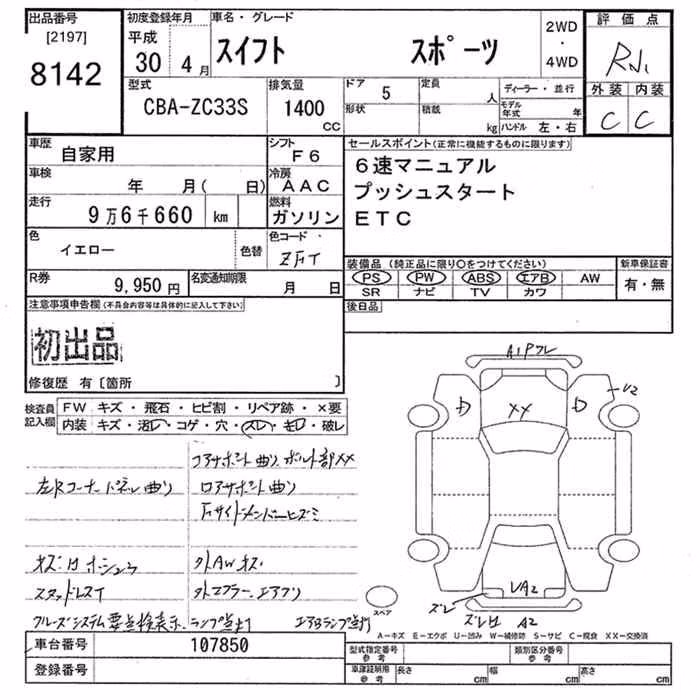 出品番号
[2197]
8142
初度登録年月
平成
30 4 月
車名・グレード
スイフト スポーツ
2WD
・
4WD
評価点
外装 内装
C C
型式
CBA-ZC33S
排気量
1400
CC
ドア 5
定員 人
形状
積載 kg
ディーラー・並行
モデル年式 年
ハンドル 左・右
車歴
自家用
シフト
F6
車検
年 月( 日)
冷房
AAC
走行
9万6千660 km
燃料
ガソリン
色
イエロー
色替
色コード
ZFT
R券
9,950 円
名変通知期限
月 日
セールスポイント(正常に機能するものに限ります)
6速マニュアル
プッシュスタート
ETC
装備品 (純正品に限り○をつけてください)
PS PW ABS エアB AW
SR ナビ TV カワ
新車保証書
有・無
後日品
注意事項申告欄(不具合内容等は具体的に記入して下さい)
初出品
修復歴 有〔箇所 〕
検査員
記入欄
FW キズ・飛石・ヒビ割・リペア跡・×要
内装 キズ・汚レ・コゲ・穴・スレ・モロ・破レ
コアサポート曲リ ボルト部XX
左Rコーナーパネル曲リ
ロアサポート曲リ
Fサイドメンバーヒズミ
外AWキズ
スタッドレス
外マフラー、エアクリ
クルーズシステム要点検表示、ランプ点灯 エアBランプ点灯
A1Pワレ
U2
XX
UA2
ズレ
A2
スペア
A-キズ E-エクボ U-凹み W-補修跡 S-サビ C-腐食 XX-交換済
車台番号 107850
登録番号
型式指定番号
参考
類別区分番号
参考
車庫証明
参考
長さ cm 幅 cm 高さ cm